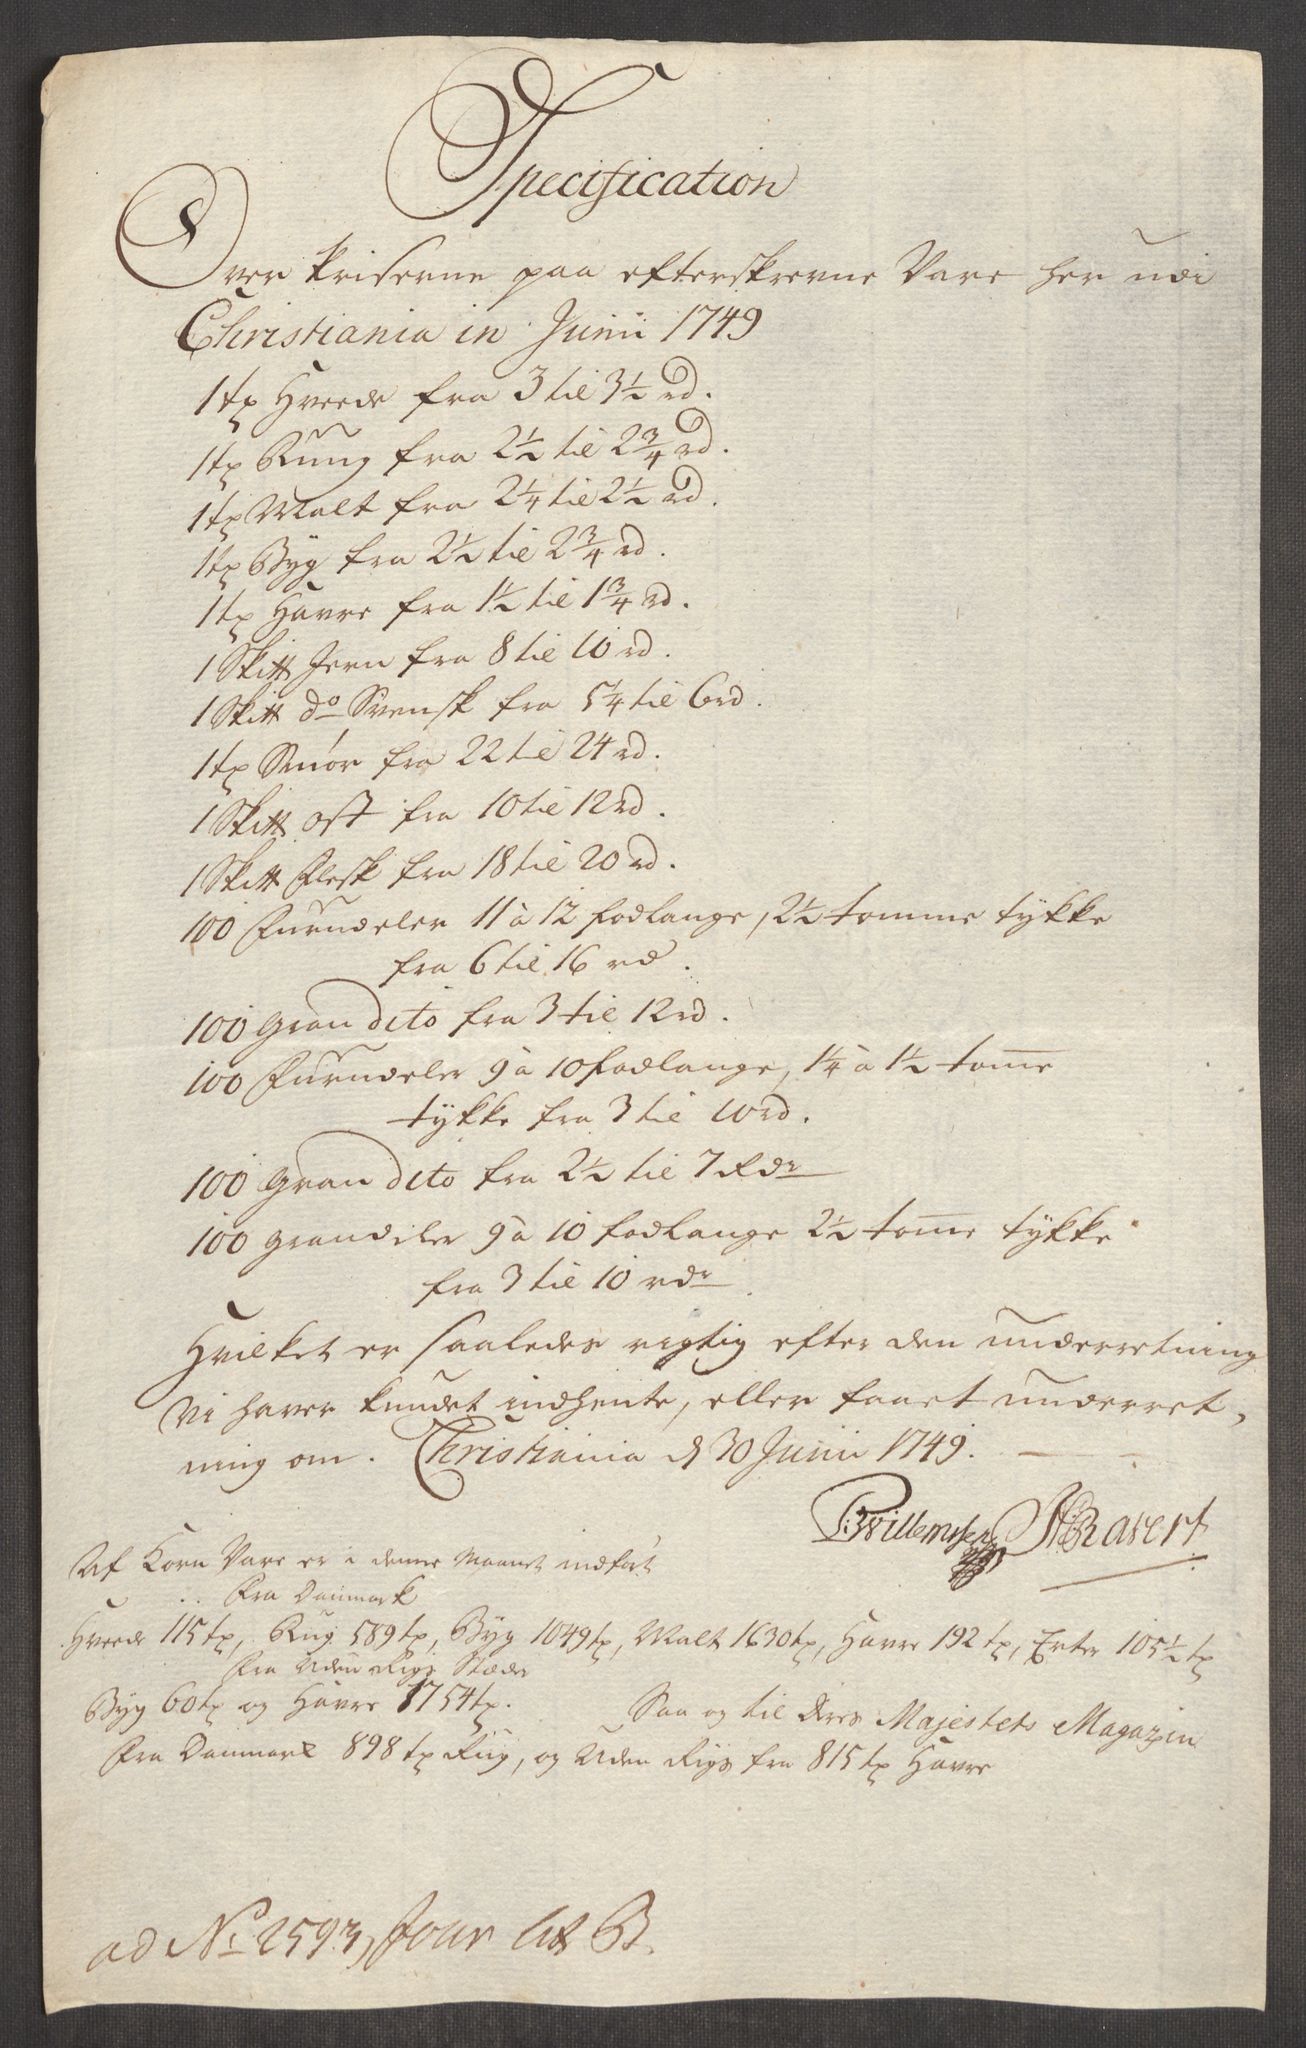 Specification
Over Priserne paa efterskrevne Vare her udi
Christiania in Junii 1749
1 tø Hveede fra 3 til 3½ rd.
1 tø Rug fra 2½ til 2¾ rd.
1 tø Malt fra 2¼ til 2½ rd.
1 tø Byg fra 2½ til 2¾ rd.
1 tø Havre fra 1½ til 1¾ rd.
1 Skitt Jern fra 8 til 10 rd.
1 Skitt do Svensk fra 5¼ til 6 rd.
1 tø Smör fra 22 til 24 rd.
1 Skitt Ost fra 10 til 12 rd.
1 Skitt Flesk fra 18 til 20 rd.
100 Furudeler 11 à 12 fodlange, 2½ tomme tykke
fra 6 til 16 rd.
100 Gran dito fra 3 til 12 rd.
100 Furudeler 9 à 10 fodlange, 1¼ à 1½ tome
tykke fra 3 til 10 rd.
100 Gran dito fra 2½ til 7 Rdr
100 Grandeler 9 à 10 fodlange 2½ tome tykke
fra 3 til 10 rdr.
Hvilket er saaledes rigtig efter den underretning
vi haver kundet indhente, eller faaet underret-
ning om. Christiania d 30 Junii 1749.
P: Willemsen
Af Korn Vare er i denne Maanet indført
Fra Danmark
Hvede 115 tø, Rug 589 tø, Byg 1049 tø, Malt 1630 tø, Havre 192 tø, Erter 105½ tø
Fra Uden Rigs Stæder
Byg 60 tø og Havre 1754 tø. Saa og til deres Majestets Magazin
Fra Danmark 898 tø Rug, og Uden Rigs fra 815 tø Havre
ad No 2593 Jour Lit B.